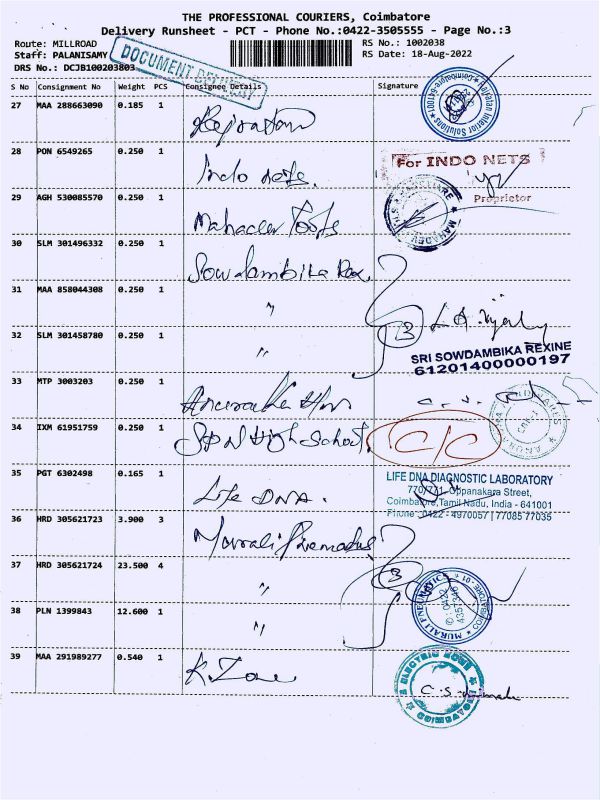 THE PROFESSIONAL COURIERS, Coimbatore
Delivery Runsheet - PCT - Phone No.:0422-3505555 - Page No.:3
Route: MILLROAD RS No.: 1002038
Staff: PALANISAMY RS Date: 18-Aug-2022
DRS No.: DCJB100203803
DOCUMENT DELIVERY
S No Consignment No Weight PCS Consignee Details Signature
27 MAA 288663090 0.185 1
Interior Solutions * Coimbatore-641001
28 PON 6549265 0.250 1 Indo nets.
For INDO NETS
Proprietor
29 AGH 530085570 0.250 1 Mahadev Tools
30 SLM 301496332 0.250 1 Sowdambika Rex.
31 MAA 858044308 0.250 1 "
32 SLM 301458780 0.250 1 " 3
SRI SOWDAMBIKA REXINE
61201400000197
33 MTP 3003203 0.250 1
34 IXM 61951759 0.250 1 High School. C/C
35 PGT 6302498 0.165 1 Life DNA.
LIFE DNA DIAGNOSTIC LABORATORY
770/771, Oppanakara Street,
Coimbatore,Tamil Nadu, India - 641001
Phone : 0422 - 4970057 | 77085 77035
36 HRD 305621723 3.900 3 Murali Pnematics
37 HRD 305621724 23.500 4 " 3
38 PLN 1399843 12.600 1 "
39 MAA 291989277 0.540 1 K. Zone
ELECTRIC ZONE
COIMBATORE